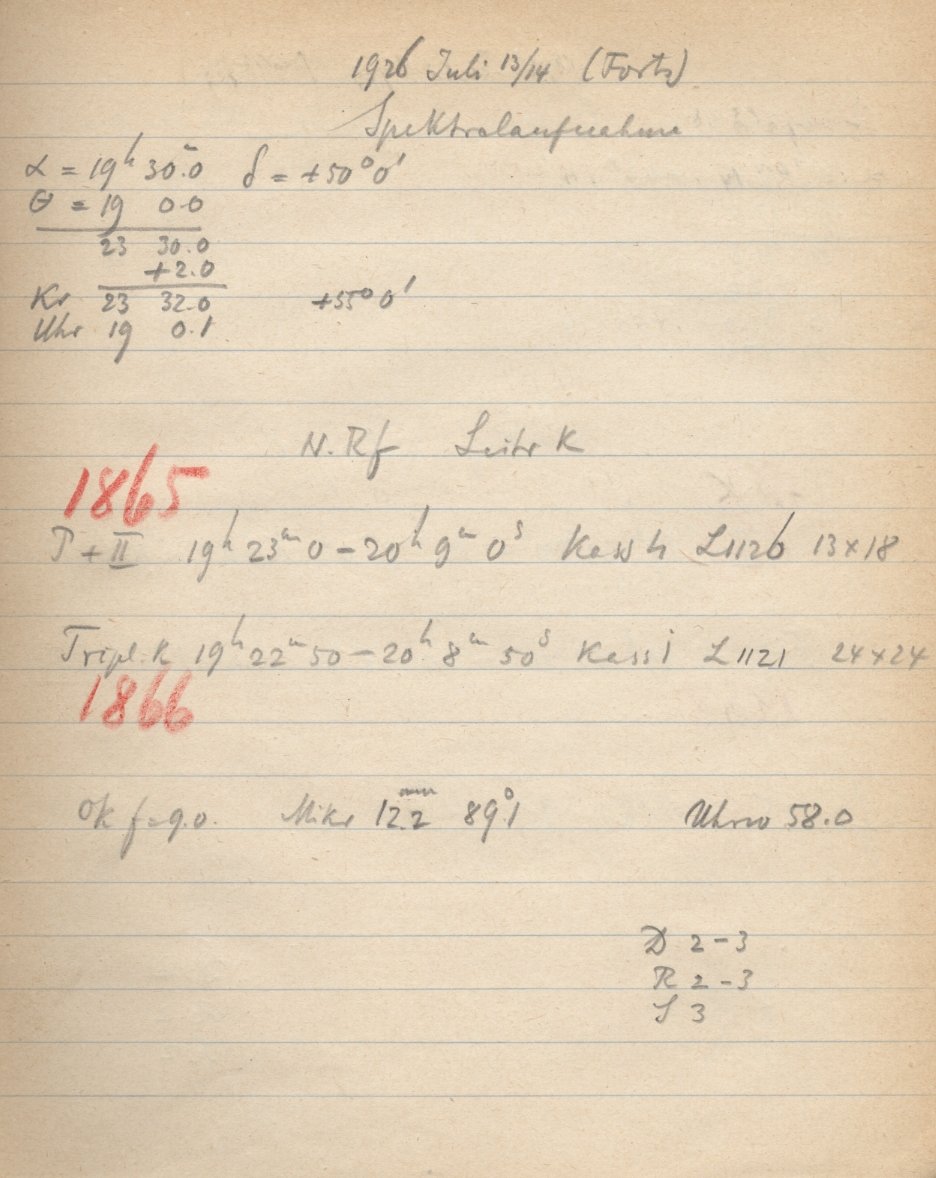 1926 Juli 13/14 (Forts)
Spektralaufnahme
α = 19h 30m.0 δ = +50° 0'
Θ = 19 0.0
23 30.0
+2.0
Kr 23 32.0 +55° 0'
Uhr 19 0.1
N. Rf Leitr K
1865
P + II 19h 23m 0 – 20h 9m 0s Kass h L1126 13×18
Tripl. K 19h 22m 50 – 20h 8m 50s Kass i L1121 24×24
1866
Ok f=9.0. Mikr 12.2mm 89°.1 Uhrw 58.0
D 2-3
R 2-3
S 3